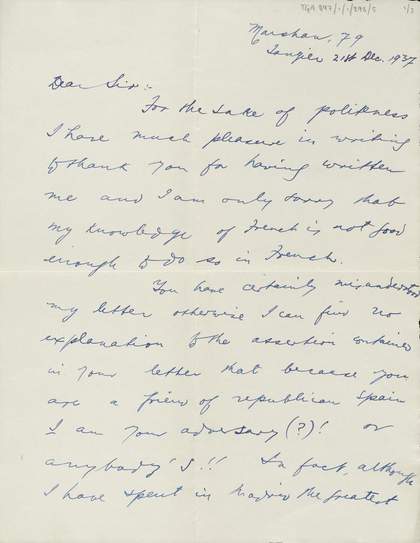 TGA 897/1/1/292/5 1/3
Marshan, 79
Tangier 21st Dec. 1937
Dear Sir:-
For the sake of politeness
I have much pleasure in writing
to thank you for having written
me and I am only sorry that
my knowledge of French is not good
enough to do so in French.
You have certainly misunderstood
my letter otherwise I can find no
explanation to the assertion contained
in your letter that because you
are a friend of republican Spain
I am your adversary (?)! or
anybody's!! In fact, although
I have spent in Madrid the greatest